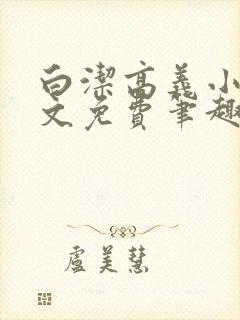 白潔高義小
文免費筆趣
盧美慧